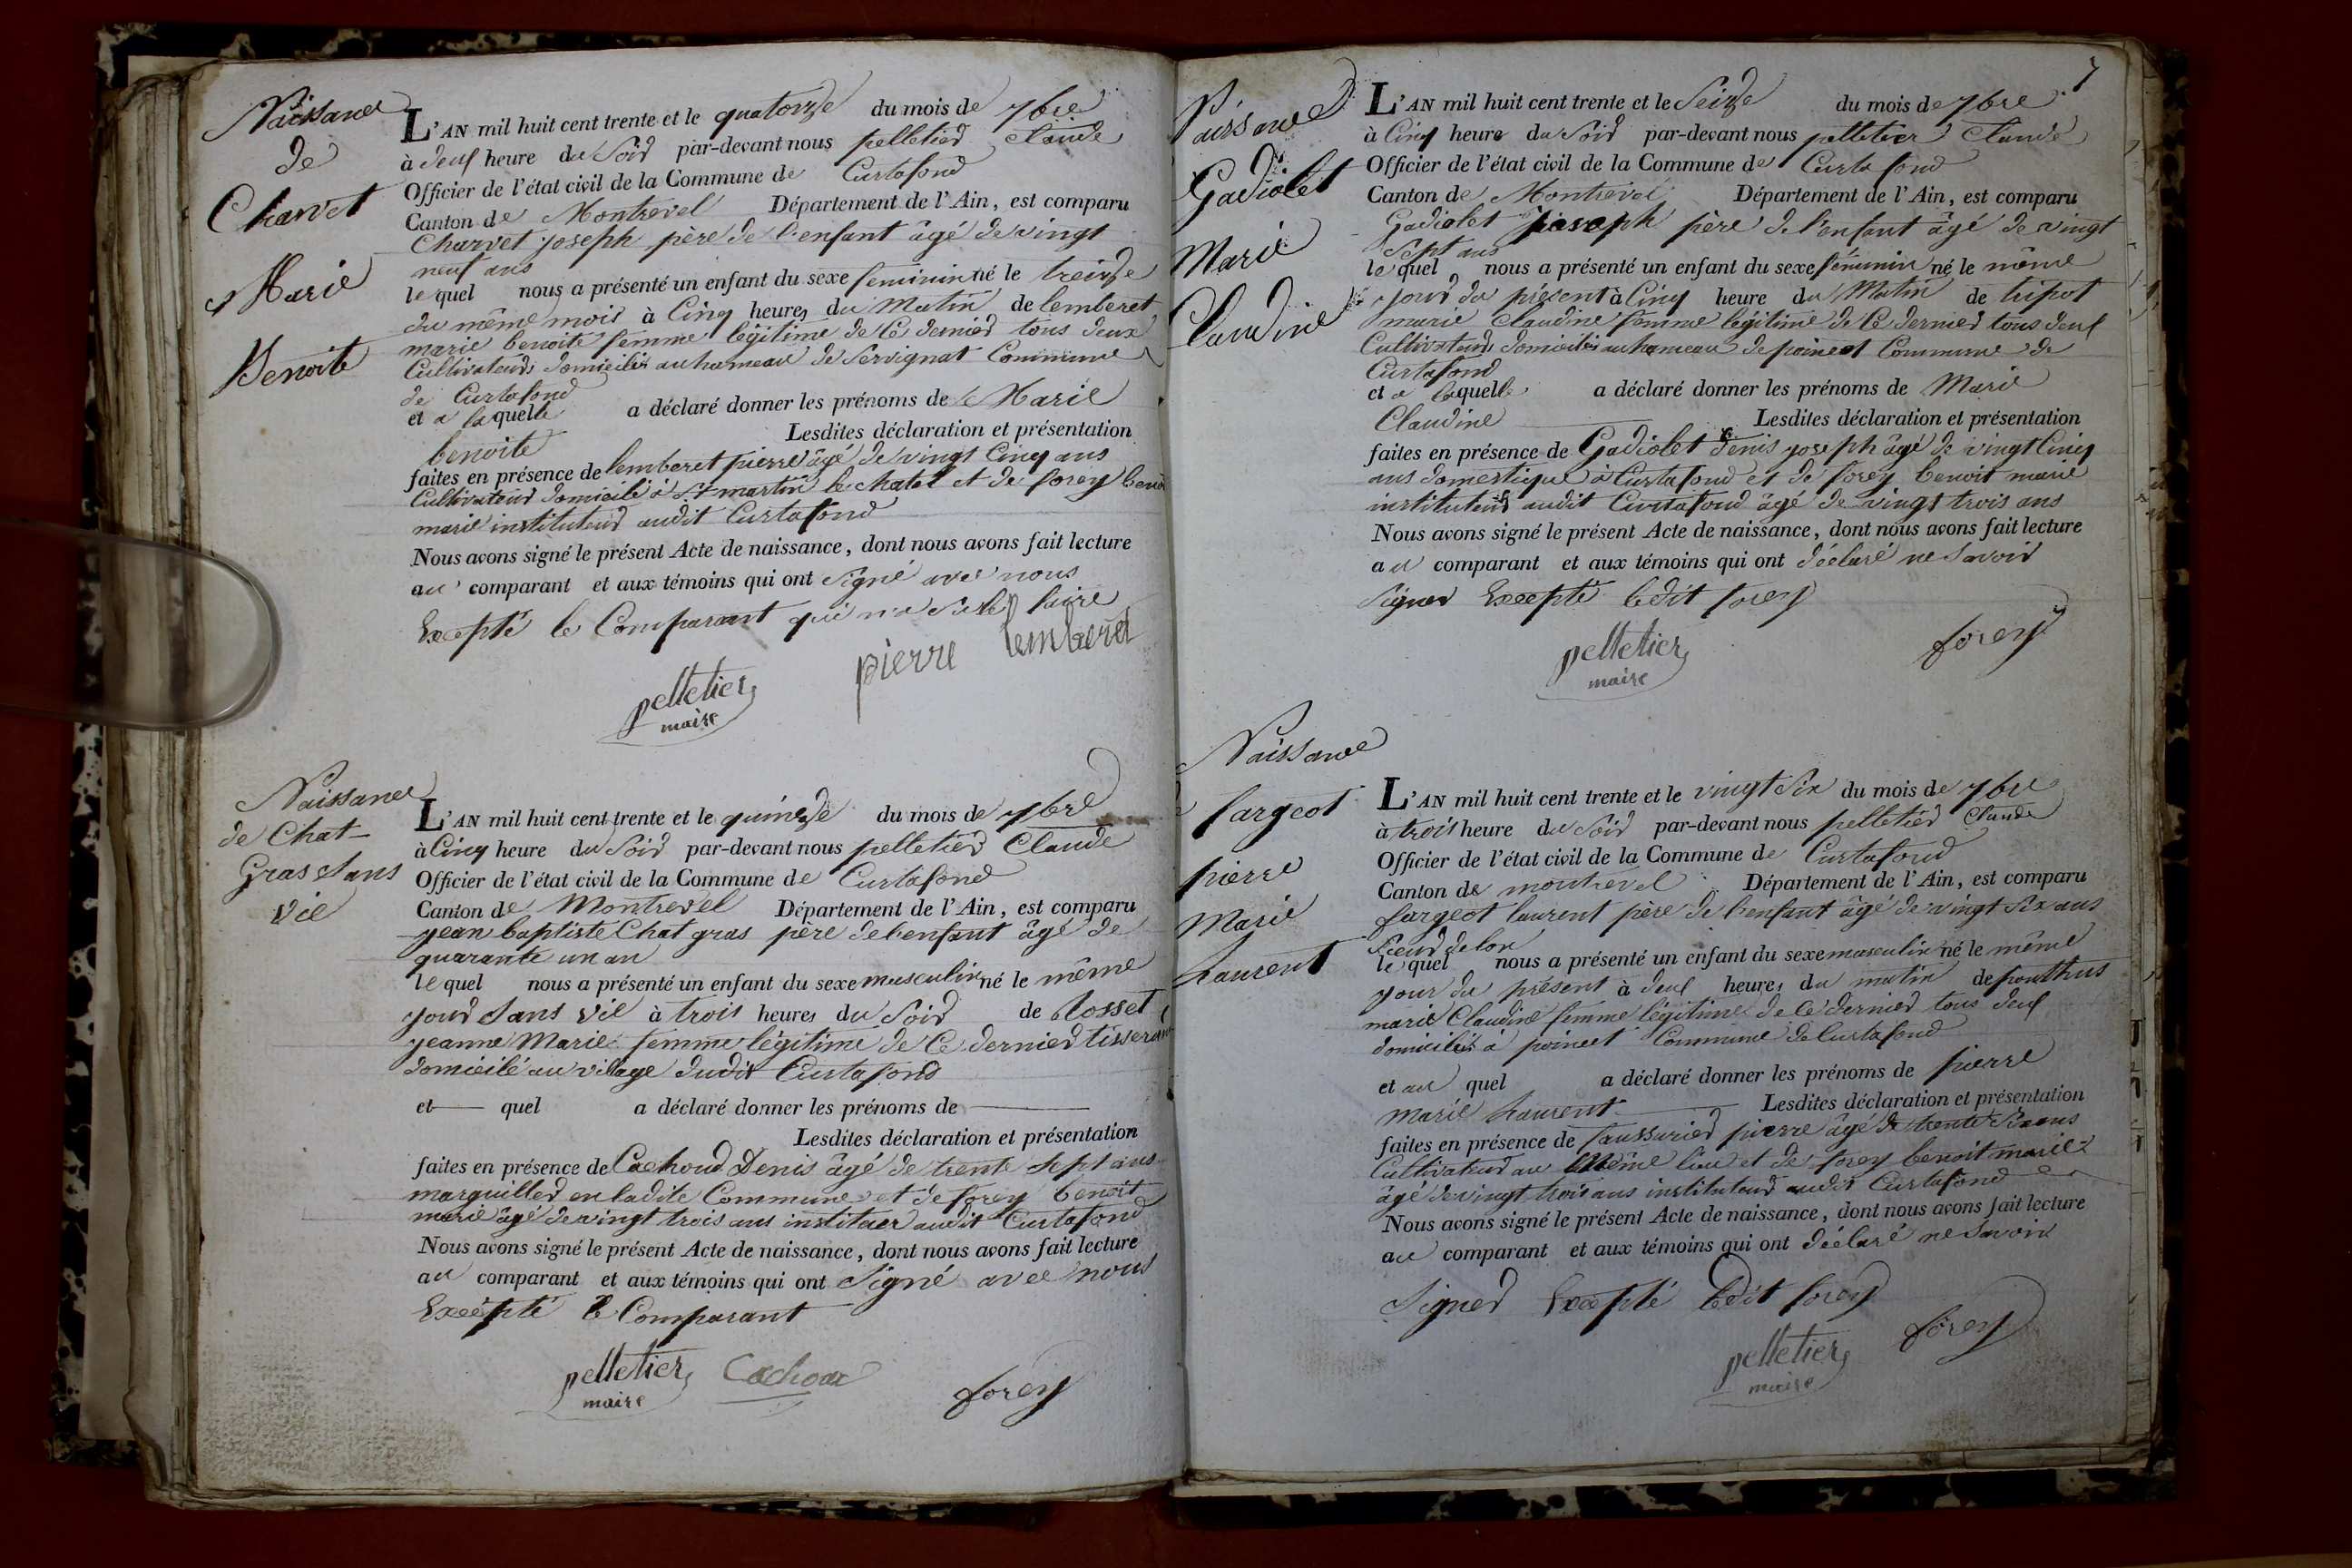 Naissance
de
Charvet
Marie
Benoite
L'AN mil huit cent trente et le quatorze du mois de 7bre
à deux heure du Soir par-devant nous pelletier Claude
Officier de l'état civil de la Commune de Curtafond
Canton de Montrevel Département de l'Ain, est comparu
Charvet joseph père de l'enfant âgé de vingt
neuf ans
lequel nous a présenté un enfant du sexe feminin né le treize
du même mois à Cinq heures du Matin de lemberet
marie benoite femme légitime de Ce dernier tous deux
Cultivateurs domiciliés au hameau de Servignat Commune
de Curtafond
et a laquelle a déclaré donner les prénoms de Marie
benoite Lesdites déclaration et présentation
faites en présence de lemberet pierre âgé de vingt Cinq ans
Cultivateur domicilié à St martin le chatel et de forey benoit
marie instituteur audit Curtafond
Nous avons signé le présent Acte de naissance, dont nous avons fait lecture
au comparant et aux témoins qui ont Signé avec nous
Excepté le Comparant qui n'a Su le faire
pelletier pierre lemberet
maire
Naissance
de Chat
Gras Sans
vie
L'AN mil huit cent trente et le quinze du mois de 7bre
à Cinq heure du Soir par-devant nous pelletier Claude
Officier de l'état civil de la Commune de Curtafond
Canton de Montrevel Département de l'Ain, est comparu
jean baptiste Chat gras père de l'enfant âgé de
quarante un an
lequel nous a présenté un enfant du sexe masculin né le même
jour Sans vie à trois heures du Soir de Rosset
jeanne Marie femme légitime de Ce dernier tisserand
domicilié au village dudit Curtafond
et quel a déclaré donner les prénoms de
Lesdites déclaration et présentation
faites en présence de Cachoud Denis âgé de trente Sept ans
marguiller en ladite Commune et de forey benoit
marie âgé de vingt trois ans institueur audit Curtafond
Nous avons signé le présent Acte de naissance, dont nous avons fait lecture
au comparant et aux témoins qui ont Signé avec nous
Excépté le Comparant
pelletier Cachoux forey
maire
7
Naissance
De
Gadiolet
Marie
Claudine
L'AN mil huit cent trente et le Seize du mois de 7bre
à Cinq heure du Soir par-devant nous pelletier Claude
Officier de l'état civil de la Commune de Curtafond
Canton de Montrevel Département de l'Ain, est comparu
Gadiolet joseph père de l'enfant âgé de vingt
Sept ans
lequel nous a présenté un enfant du sexe féminin né le même
jour du présent à Cinq heure du Matin de tripot
marie Claudine femme légitime de Ce dernier tous deux
Cultivateurs domiciliés au hameau de poineet Commune de
Curtafond
et a laquelle a déclaré donner les prénoms de Marie
Claudine Lesdites déclaration et présentation
faites en présence de Gadiolet denis joseph âgé de vingt Cinq
ans domestique à Curtafond et de forey benoit marie
instituteur audit Curtafond âgé de vingt trois ans
Nous avons signé le présent Acte de naissance, dont nous avons fait lecture
au comparant et aux témoins qui ont déclaré ne Savoir
Signer Excepté ledit forey
pelletier forey
maire
Naissance
fargeot
pierre
Marie
Laurent
L'AN mil huit cent trente et le vingt Six du mois de 7bre
à trois heure du Soir par-devant nous pelletier Claude
Officier de l'état civil de la Commune de Curtafond
Canton de montrevel Département de l'Ain, est comparu
fargeot laurent père de l'enfant âgé de vingt Six ans
Sieur de lon
lequel nous a présenté un enfant du sexe masculin né le même
jour du présent à deux heures du matin de ponthus
marie Claudine femme légitime de Ce dernier tous deux
domiciliés à poineet Commune de Curtafond
et au quel a déclaré donner les prénoms de pierre
marie Laurent Lesdites déclaration et présentation
faites en présence de faussurier pierre âgé de trente Six ans
Cultivateur au même lieu et de forey benoit marie
âgé de vingt trois ans instituteur audit Curtafond
Nous avons signé le présent Acte de naissance, dont nous avons fait lecture
au comparant et aux témoins qui ont déclaré ne Savoir
Signer Excépté ledit forey
pelletier forey
maire